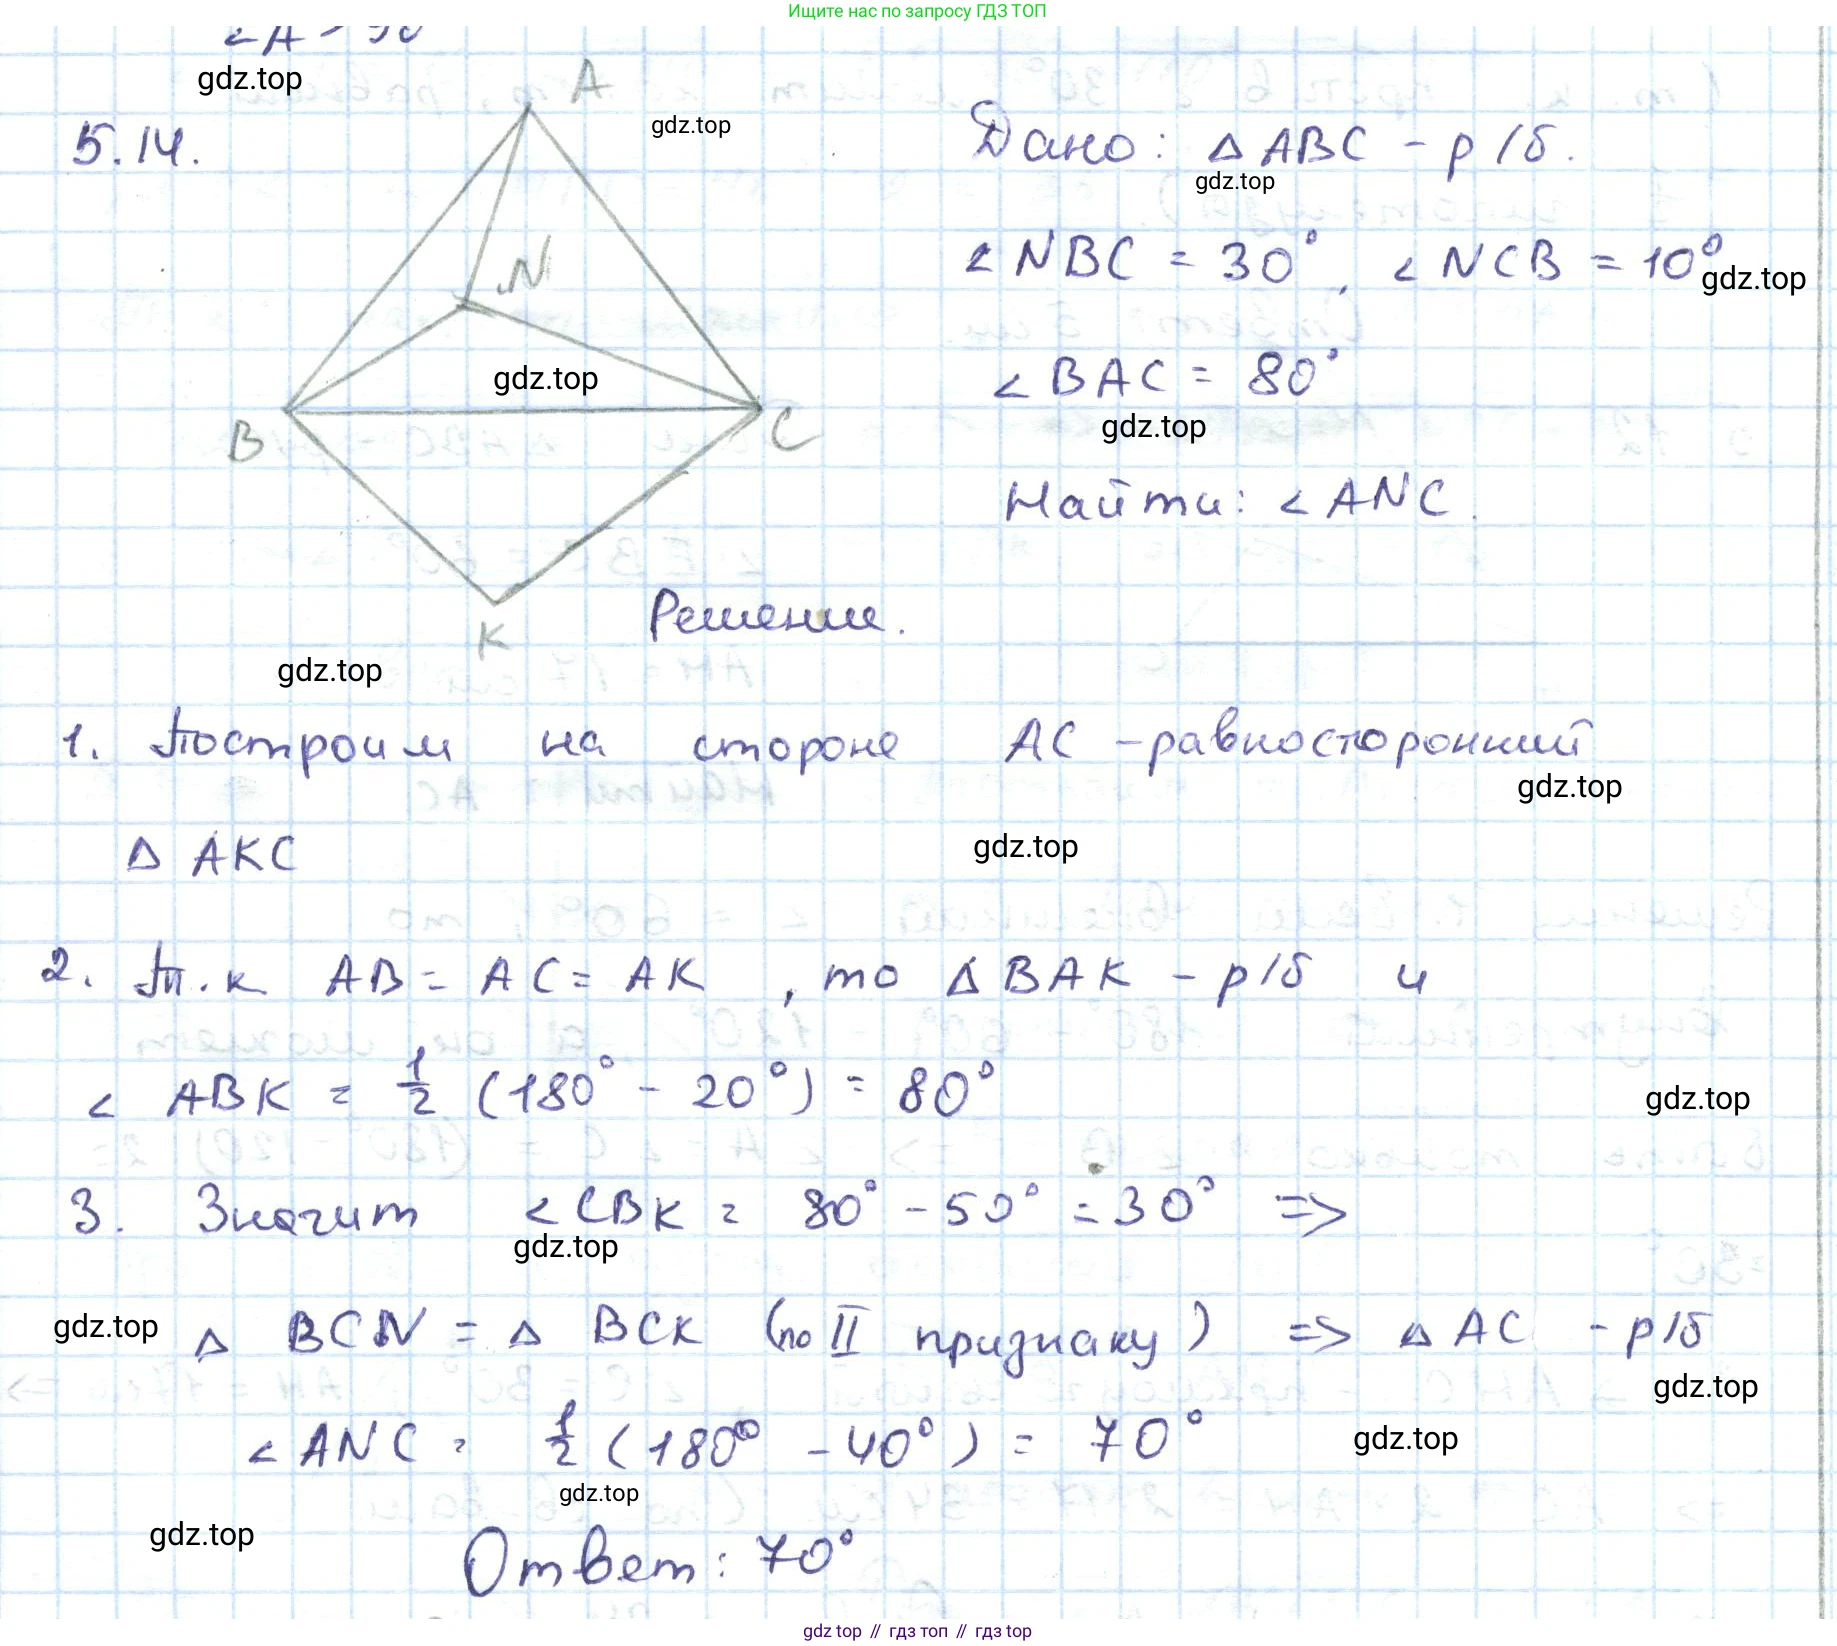 Ищите нас по запросу ГДЗ ТОП
gdz.top
5.14.
A
gdz.top
Дано: △ ABC - р/б.
gdz.top
N
∠ NBC = 30°, ∠ NCB = 10°
gdz.top
gdz.top
∠ BAC = 80°
gdz.top
B
C
Найти: ∠ ANC.
K
Решение.
gdz.top
1. Построим на стороне AC - равносторонний
gdz.top
△ AKC
gdz.top
2. Т.к AB = AC = AK, то △ BAK - р/б и
∠ ABK = 1/2 (180° - 20°) = 80°
gdz.top
3. Значит ∠ CBK = 80° - 50° = 30° =>
gdz.top
gdz.top
△ BCN = △ BCK (по II признаку) => △ AC - р/б
gdz.top
∠ ANC = 1/2 (180° - 40°) = 70°
gdz.top
gdz.top
gdz.top
Ответ: 70°
gdz top // гдз топ // gdz top